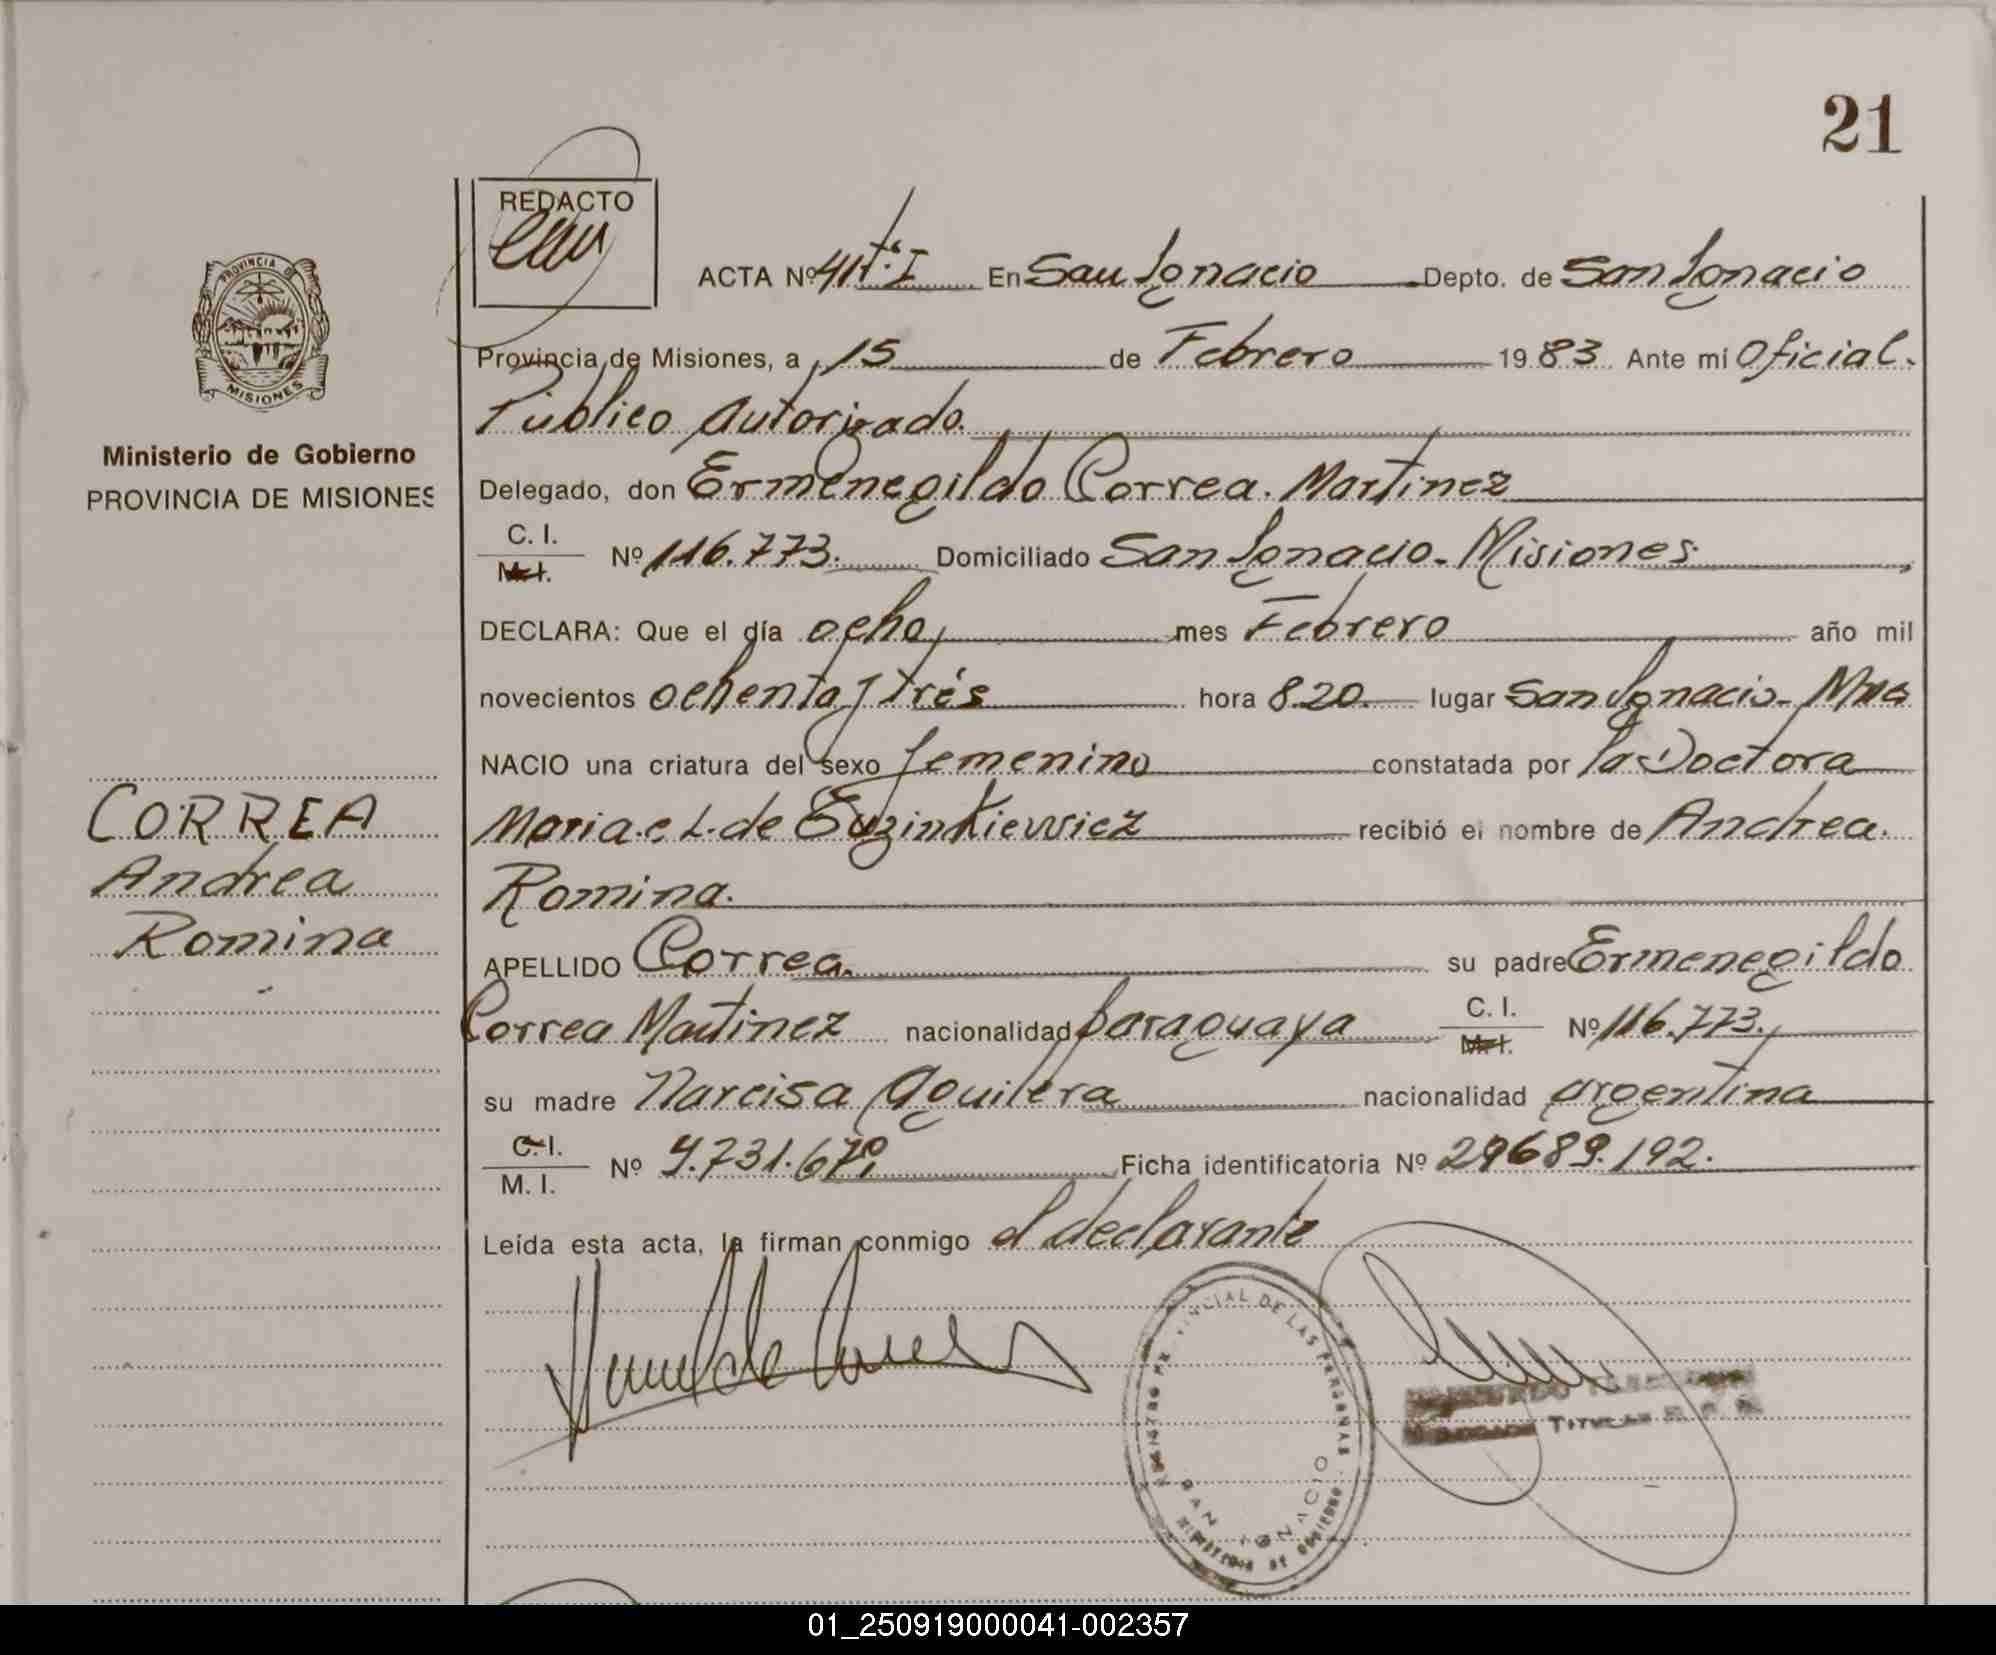 21
REDACTO
ACTA Nº 41 tº. I En San Ignacio Depto. de San Ignacio
Provincia de Misiones, a 15 de Febrero 1983 Ante mí Oficial.
Público Autorizado.
Delegado, don Ermenegildo Correa. Martinez
C. I.
M. I.
Nº 116.773. Domiciliado San Ignacio. Misiones.
DECLARA: Que el día ocho, mes Febrero año mil
novecientos ochenta y trés hora 8.20. lugar San Ignacio. Mnes
NACIO una criatura del sexo femenino constatada por la Doctora
Maria. e L. de recibió el nombre de Andrea.
Romina.
APELLIDO Correa. su padre Ermenegildo
Correa Martinez nacionalidad paraguaya C. I. M. I. Nº 116.773.,
su madre Narcisa Aguilera nacionalidad argentina
C. I.
M. I.
Nº Ficha identificatoria Nº 29689.192.
Leída esta acta, la firman conmigo el declarante
PROVINCIA DE
MISIONES
Ministerio de Gobierno
PROVINCIA DE MISIONES
CORREA
Andrea
Romina
REGISTRO PROVINCIAL DE LAS PERSONAS
SAN IGNACIO
MINISTERIO DE GOBIERNO
TITULAR
01_250919000041-002357